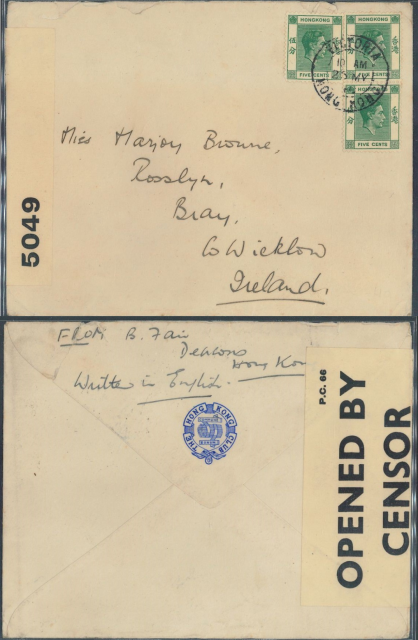 HONGKONG
HONGKONG
FIVE CENTS
HONGKONG
FIVE CENTS
VICTORIA
10 AM
MY
HONG KONG
5049
Miss Marjory Browne,
Rosslyn,
Bray,
Co Wicklow
Ireland.
From B. Fair
Deacons
Hong Kon
Written in English.
THE HONG KONG CLUB
P.C. 66
OPENED BY
CENSOR